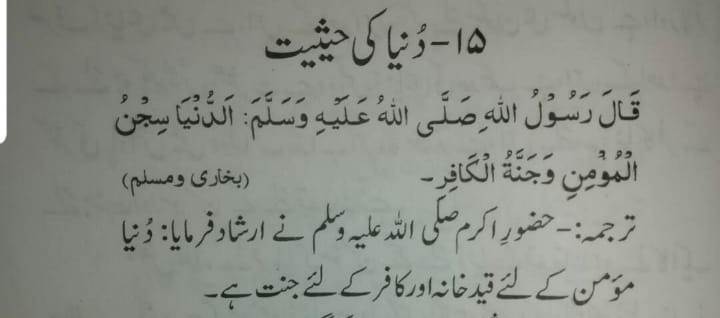 ۱۵- دُنیا کی حیثیت
قَالَ رَسُوْلُ اللهِ صَلَّی اللهُ عَلَیْهِ وَسَلَّمَ: اَلدُّنْیَا سِجْنُ
الْمُؤْمِنِ وَجَنَّةُ الْکَافِرِ۔ (بخاری ومسلم)
ترجمہ:- حضورِ اکرم صلّی اللہ علیہ وسلم نے ارشاد فرمایا: دُنیا
مؤمن کے لئے قید خانہ اور کافر کے لئے جنت ہے۔